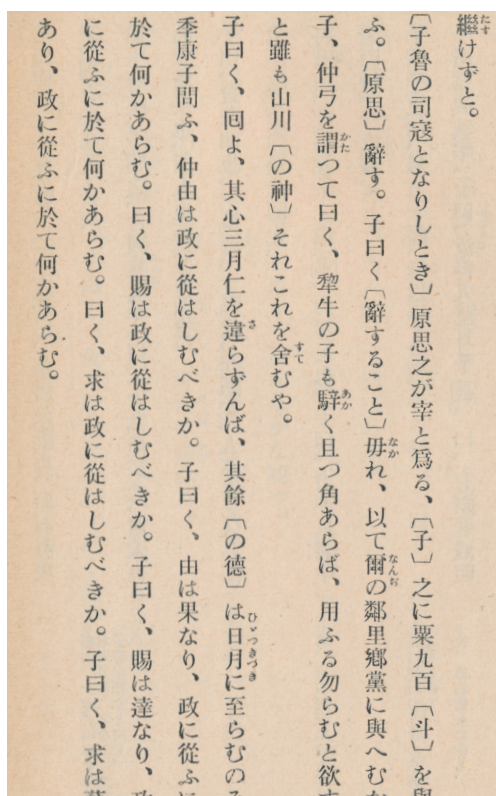 繼けずと。
〔子魯の司寇となりしとき〕原思之が宰と爲る、〔子〕之に粟九百〔斗〕を與
ふ。〔原思〕辭す。子曰く〔辭すること〕毋れ、以て爾の鄰里鄕黨に與へむ
子、仲弓を謂つて曰く、犂牛の子も騂く且つ角あらば、用ふる勿らむと欲す
と雖も山川〔の神〕それこれを舍むや。
子曰く、囘よ、其心三月仁を違らずんば、其餘〔の德〕は日月に至らむのみ
季康子問ふ、仲由は政に從はしむべきか。子曰く、由は果なり、政に從ふに
於て何かあらむ。曰く、賜は政に從はしむべきか。子曰く、賜は達なり、政
に從ふに於て何かあらむ。曰く、求は政に從はしむべきか。子曰く、求は
あり、政に從ふに於て何かあらむ。